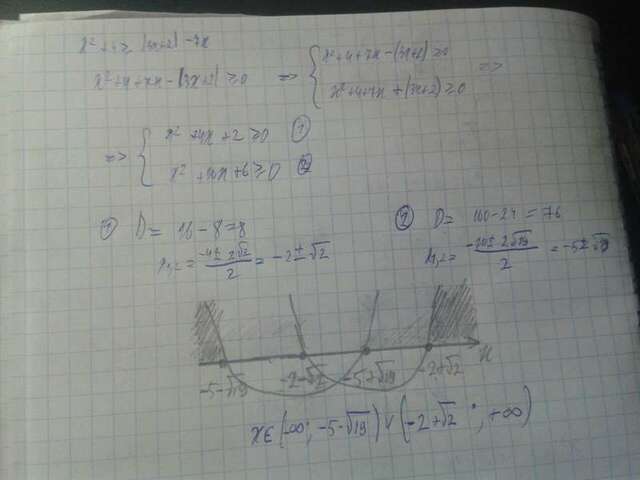 x² + 4 ≥ |3x+2| - 7x
x² + 4 + 7x - |3x+2| ≥ 0 => { x² + 4 + 7x - (3x+2) ≥ 0 =>
x² + 4 + 7x + (3x+2) ≥ 0
=> { x² + 4x + 2 ≥ 0 ①
x² + 10x + 6 ≥ 0 ②
① D = 16 - 8 = 8
x₁,₂ = (-4 ± 2√2)/2 = -2 ± √2
② D = 100 - 24 = 76
x₁,₂ = (-10 ± 2√19)/2 = -5 ± √19
x
-5-√19 -2-√2 -5+√19 -2+√2
x ∈ (-∞; -5-√19) ∨ (-2+√2; +∞)